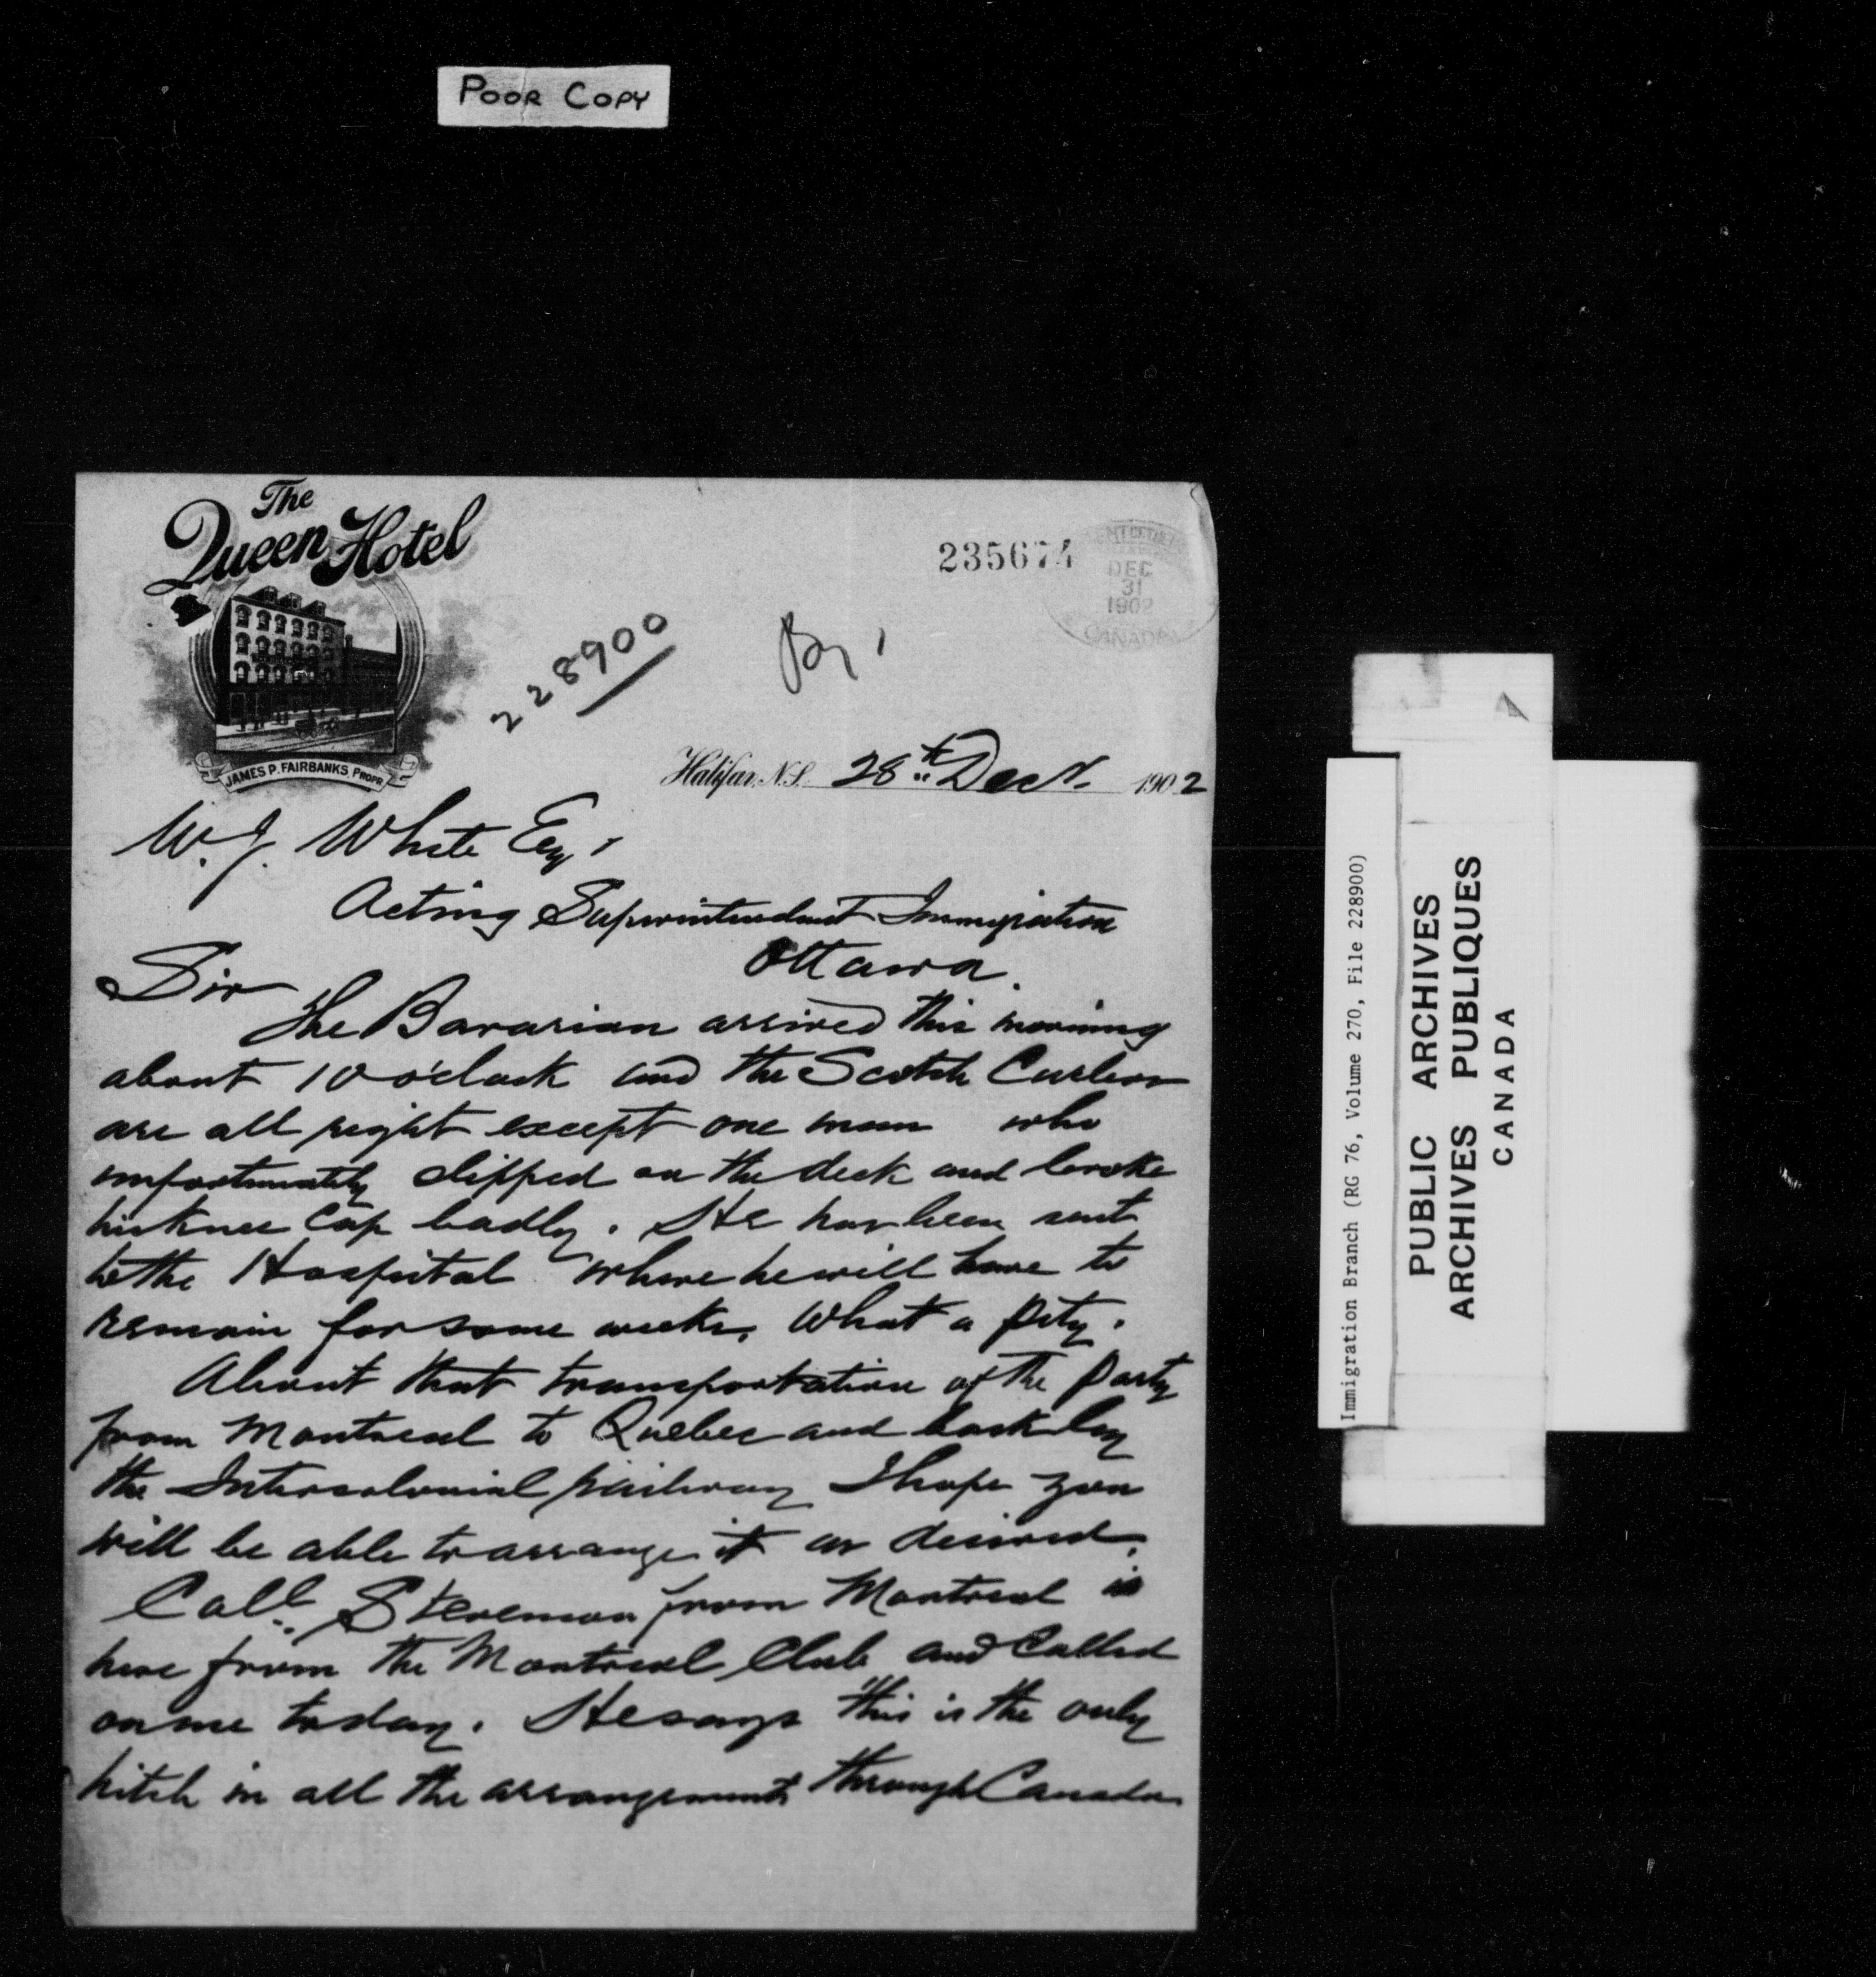 POOR COPY
The
Queen Hotel
JAMES P. FAIRBANKS, PROPR
235674
DEC
31
1902
CANADA
228900
Halifax, N.S. 28th Decr. 1902
W. J. White Esq,
Acting Superintendent Immigration
Ottawa.
Sir
The Bavarian arrived this morning
about 10 o'clock and the Scotch Curlers
are all right except one man who
unfortunately slipped on the deck and broke
his knee cap badly. He has been sent
to the Hospital where he will have to
remain for some weeks. What a pity.
About that transportation of the party
from Montreal to Quebec and back by
the Intercolonial railway I hope you
will be able to arrange it as desired.
Coll. Stevenson from Montreal is
here from the Montreal Club and called
on me today. He says this is the only
hitch in all the arrangements through Canada
Immigration Branch (RG 76, Volume 270, File 228900)
PUBLIC ARCHIVES
ARCHIVES PUBLIQUES
CANADA